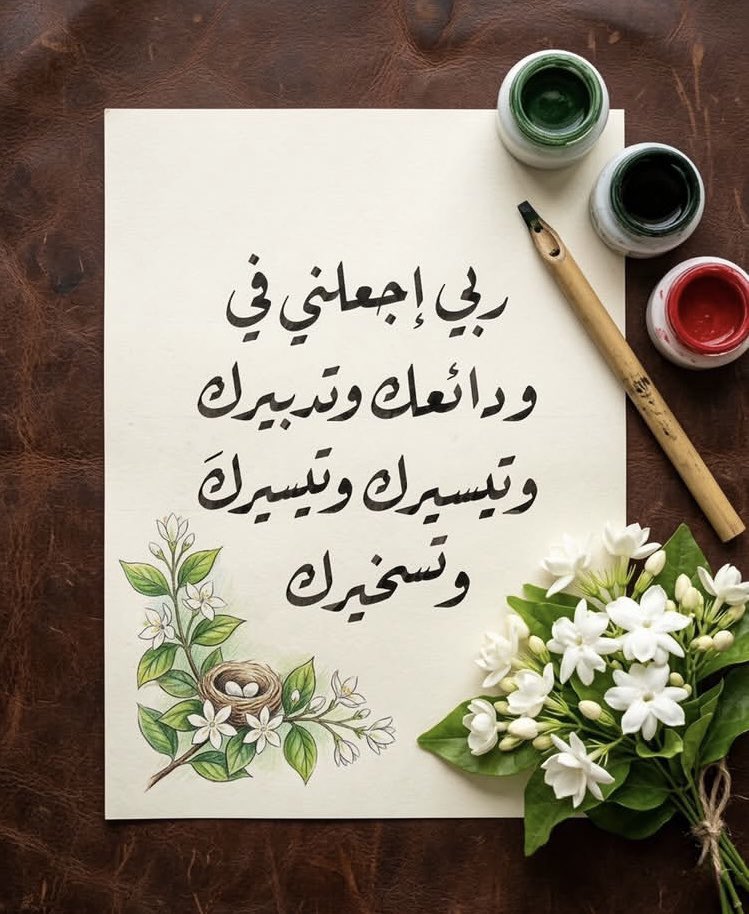 ربي إجعلني في
ودائعك وتدبيرك
وتيسيرك وتيسيركَ
وتسخيرك